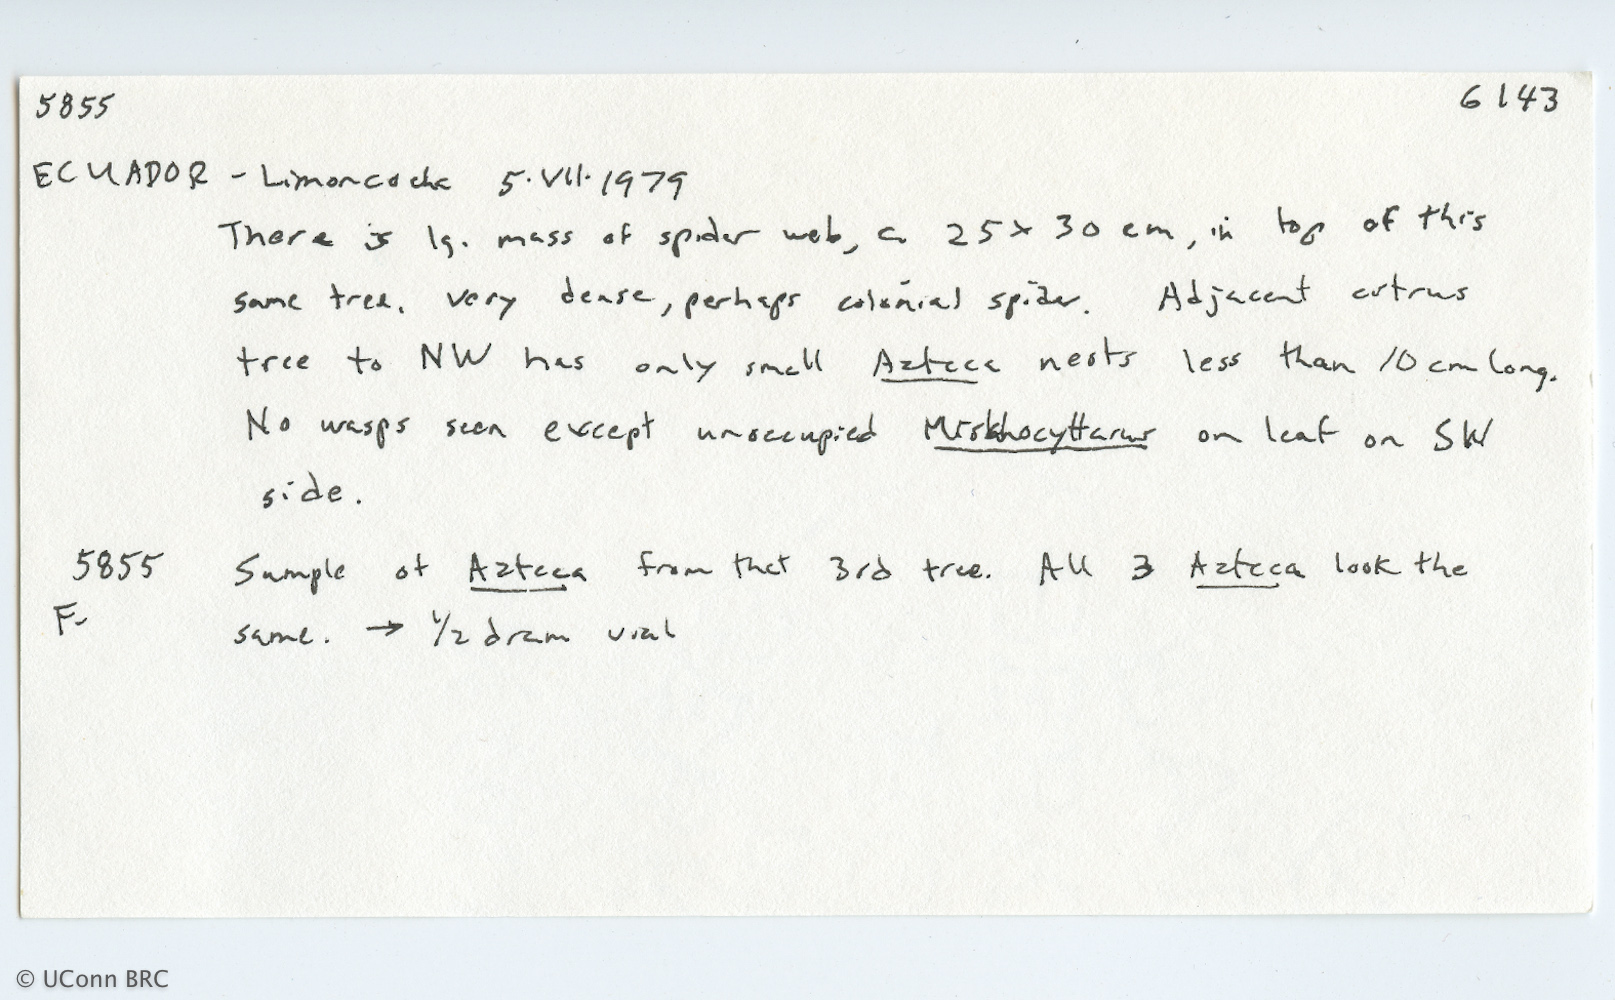 5855 6143
ECUADOR - Limoncocha 5.VII.1979
There is lg. mass of spider web, c. 25 x 30 cm, in top of this
same tree. Very dense, perhaps colonial spider. Adjacent citrus
tree to NW has only small Azteca nests less than 10 cm long.
No wasps seen except unoccupied Mischocyttarus on leaf on SW
side.
5855 Sample of Azteca from that 3rd tree. All 3 Azteca look the
F- same. → 1/2 dram vial
© UConn BRC